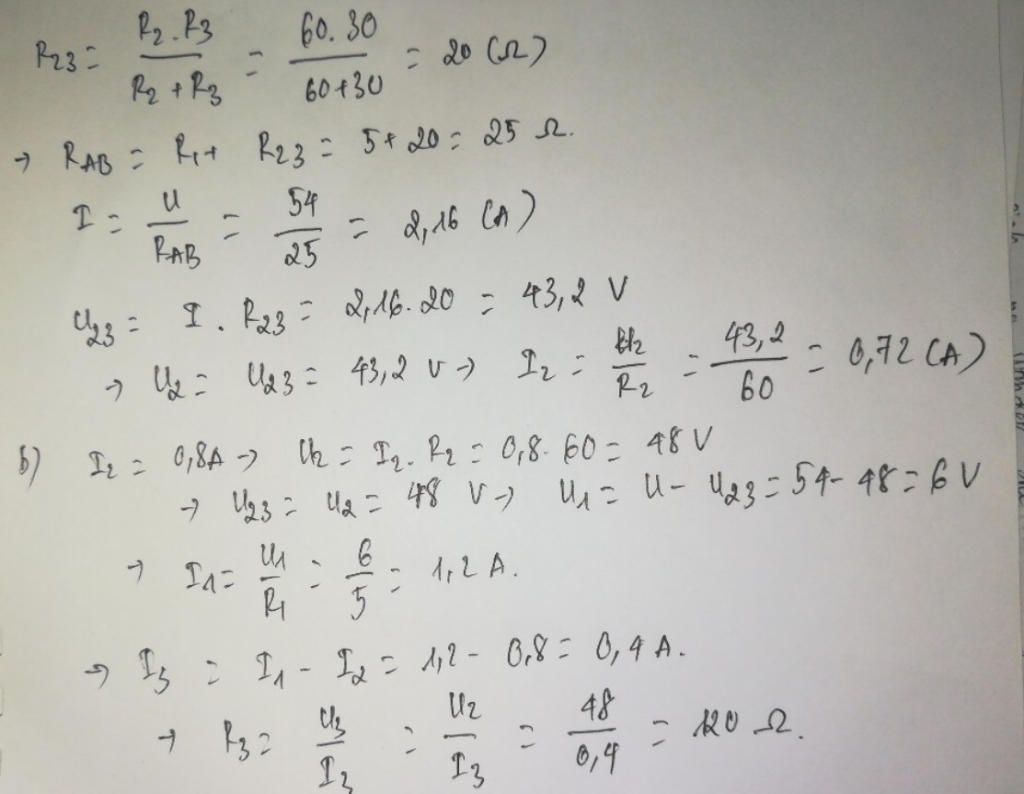 R23 = R2.R3 / R2+R3 = 60.30 / 60+30 = 20 (Ω)
→ RAB = R1+ R23 = 5+20 = 25 Ω.
I = U / RAB = 54 / 25 = 2,16 (A)
U23 = I . R23 = 2,16.20 = 43,2 V
→ U2 = U23 = 43,2 V → I2 = U2 / R2 = 43,2 / 60 = 0,72 (A)
b) I2 = 0,8A → U2 = I2. R2 = 0,8. 60 = 48 V
→ U23 = U2 = 48 V → U1 = U - U23 = 54 - 48 = 6 V
→ I1 = U1 / R1 = 6 / 5 = 1,2 A.
→ I3 = I1 - I2 = 1,2 - 0,8 = 0,4 A.
→ R3 = U3 / I3 = U2 / I3 = 48 / 0,4 = 120 Ω.